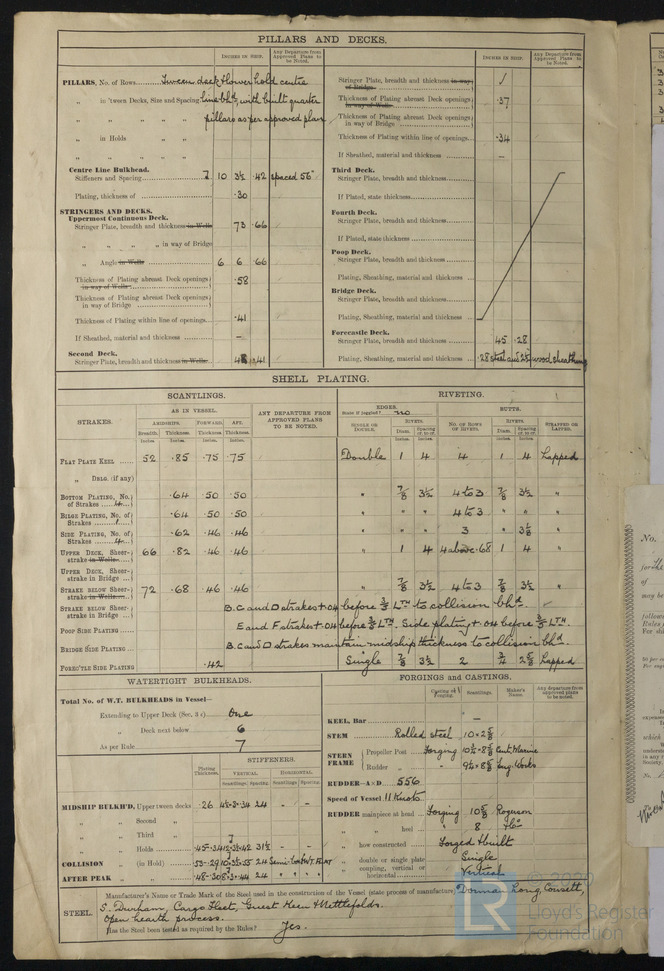 PILLARS AND DECKS.
INCHES IN SHIP. Any Departure from Approved Plans to be Noted.
PILLARS, No. of Rows Tween deck & lower hold centre
„ in 'tween Decks, Size and Spacing line bhd, with built quarter
„ „ „ „ pillars as per approved plan
„ in Holds „
„ „ „ „
Centre Line Bulkhead.
Stiffeners and Spacing 7 10 3½ .42 spaced 56"
Plating, thickness of .30
STRINGERS AND DECKS.
Uppermost Continuous Deck.
Stringer Plate, breadth and thickness in Wells 73 .66
„ „ „ „ in way of Bridge
„ Angle in Wells 6 6 .66
Thickness of Plating abreast Deck openings in way of Wells .58
Thickness of Plating abreast Deck openings in way of Bridge
Thickness of Plating within line of openings .41
If Sheathed, material and thickness –
Second Deck.
Stringer Plate, breadth and thickness in Wells .41
INCHES IN SHIP. Any Departure from Approved Plans to be Noted.
Stringer Plate, breadth and thickness in way of Bridge
Thickness of Plating abreast Deck openings in way of Wells .37
Thickness of Plating abreast Deck openings in way of Bridge
Thickness of Plating within line of openings .34
If Sheathed, material and thickness –
Third Deck.
Stringer Plate, breadth and thickness
If Plated, state thickness
Fourth Deck.
Stringer Plate, breadth and thickness
If Plated, state thickness
Poop Deck.
Stringer Plate, breadth and thickness
Plating, Sheathing, material and thickness
Bridge Deck.
Stringer Plate, breadth and thickness
Plating, Sheathing, material and thickness
Forecastle Deck.
Stringer Plate, breadth and thickness 45 .28
Plating, Sheathing, material and thickness .28 steel and 2½ wood sheathing
SHELL PLATING.
SCANTLINGS. RIVETING.
STRAKES. AS IN VESSEL. ANY DEPARTURE FROM APPROVED PLANS TO BE NOTED. EDGES. State if joggled? no BUTTS.
AMIDSHIPS. FORWARD. AFT. SINGLE OR DOUBLE. RIVETS. NO. OF ROWS OF RIVETS. RIVETS. STRAPPED OR LAPPED.
Breadth. Thickness. Thickness. Thickness. Diam. Spacing cr. to cr. Diam. Spacing cr. to cr.
Inches. Inches. Inches. Inches. Inches. Inches. Inches. Inches.
FLAT PLATE KEEL 52 .85 .75 .75 Double 1 4 4 1 4 Lapped
„ DBLG. (if any)
BOTTOM PLATING, No. of Strakes 4 .64 .50 .50 " ⅞ 3½ 4 to 3 ⅞ 3½ "
BILGE PLATING, No. of Strakes 1 .64 .50 .50 " " " 4 to 3 " " "
SIDE PLATING, No. of Strakes 4 .62 .46 .46 " " " 3 " 3⅛ "
UPPER DECK, Sheerstrake in Wells 66 .82 .46 .46 " 1 4 4 above .68 1 4 "
UPPER DECK, Sheerstrake in Bridge
STRAKE BELOW Sheerstrake in Wells 72 .68 .46 .46 " ⅞ 3½ 4 to 3 ⅞ 3½ "
STRAKE BELOW Sheerstrake in Bridge B. C and D strakes + .04 before ⅗ LTH to collision bhd.
POOP SIDE PLATING E and F strakes + .04 before ⅗ LTH. Side plating + .04 before ⅗ LTH
BRIDGE SIDE PLATING B. C and D strakes maintain midship thickness to collision bhd.
FORECTLE SIDE PLATING .42 Single ⅞ 3½ 2 ¾ 2⅝ Lapped
WATERTIGHT BULKHEADS.
Total No. of W.T. BULKHEADS in Vessel—
Extending to Upper Deck (Sec. 3 c) One
„ Deck next below 6
As per Rule 7
Plating Thickness. STIFFENERS.
VERTICAL HORIZONTAL
Scantlings Spacing Scantlings Spacing
MIDSHIP BULKH'D, Upper tween decks .26 24 – –
„ „ Second „
„ „ Third „
„ „ Holds 31½ – –
COLLISION „ (in Hold) 24
AFTER PEAK „ „ 24 " " " "
FORGINGS and CASTINGS.
Casting or Forging. Scantlings. Maker's Name Any departure from approved plans to be noted.
KEEL, Bar –
STEM Rolled steel 10 × 2⅝
STERN FRAME Propeller Post Forging Cent. Marine
Rudder „ – Eng. Works
RUDDER—A×D 556
Speed of Vessel 11 Knots
RUDDER mainpiece at head Forging 10⅝
„ „ heel " 8 do
„ how constructed Forged & built
„ double or single plate Single
„ coupling, vertical or horizontal Vertical
STEEL. Manufacturer's Name or Trade Mark of the Steel used in the construction of the Vessel (state process of manufacture) Dorman Long, Consett,
S. Durham, Cargo Fleet, Guest Keen & Nettlefolds.
Open hearth process.
Has the Steel been tested as required by the Rules? Yes.
© 2020
LR
Lloyd's Register
Foundation
No.
of
may be